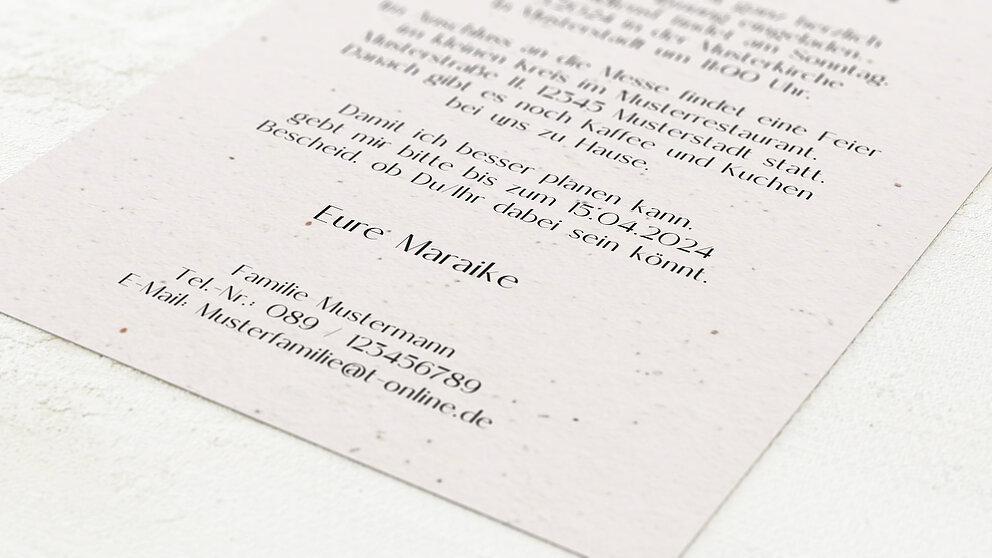 ganz herzlich
eingeladen.
findet am Sonntag,
2024 in der Musterkirche
in Musterstadt um 11:00 Uhr.
Im Anschluss an die Messe findet eine Feier
im kleinen Kreis im Musterrestaurant,
Musterstraße 11, 12345 Musterstadt statt.
Danach gibt es noch Kaffee und Kuchen
bei uns zu Hause.
Damit ich besser planen kann,
gebt mir bitte bis zum 15.04.2024
Bescheid, ob Du/Ihr dabei sein könnt.
Eure Maraike
Familie Mustermann
Tel.-Nr.: 089 / 123456789
E-Mail: Musterfamilie@t-online.de